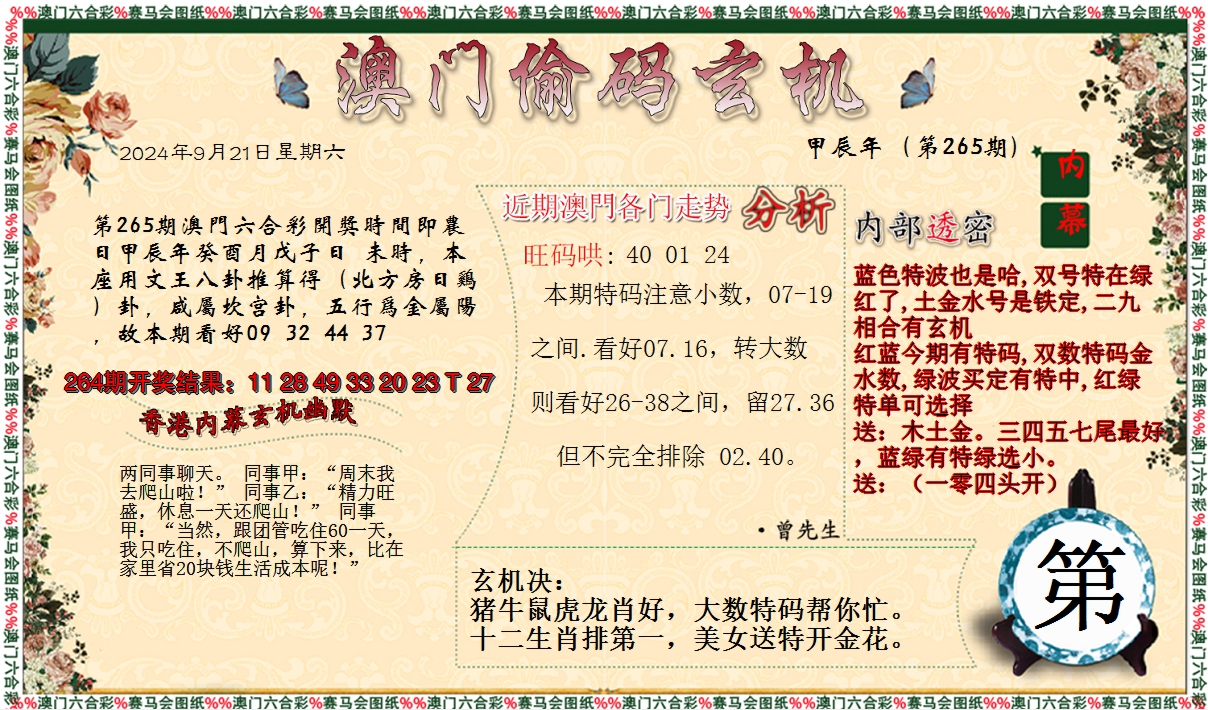 %%澳门六合彩%赛马会图纸%%澳门六合彩%赛马会图纸%%澳门六合彩%赛马会图纸%%澳门六合彩%赛马会图纸%%澳门六合彩%赛马会图纸%%澳门六合彩%赛马会图纸%%
澳门偷码玄机
2024年9月21日星期六
甲辰年（第265期）
第265期澳門六合彩開獎時間即農
日甲辰年癸酉月戊子日 未時，本
座用文王八卦推算得（北方房日鷄
）卦，咸屬坎宫卦，五行爲金屬陽
，故本期看好09 32 44 37
264期开奖结果：11 28 49 33 20 23 T 27
香港内幕玄机幽默
两同事聊天。 同事甲：“周末我
去爬山啦！” 同事乙：“精力旺
盛，休息一天还爬山！” 同事
甲：“当然，跟团管吃住60一天，
我只吃住，不爬山，算下来，比在
家里省20块钱生活成本呢！”
近期澳門各门走势 分析
旺码哄: 40 01 24
本期特码注意小数，07-19
之间.看好07.16，转大数
则看好26-38之间，留27.36
但不完全排除 02.40。
·曾先生
玄机决：
猪牛鼠虎龙肖好，大数特码帮你忙。
十二生肖排第一，美女送特开金花。
内幕
内部透密
蓝色特波也是哈,双号特在绿
红了,土金水号是铁定,二九
相合有玄机
红蓝今期有特码,双数特码金
水数,绿波买定有特中,红绿
特单可选择
送：木土金。三四五七尾最好
，蓝绿有特绿选小。
送：（一零四头开）
第
%%澳门六合彩%赛马会图纸%%澳门六合彩%赛马会图纸%%澳门六合彩%赛马会图纸%%澳门六合彩%赛马会图纸%%澳门六合彩%赛马会图纸%%澳门六合彩%赛马会图纸%%